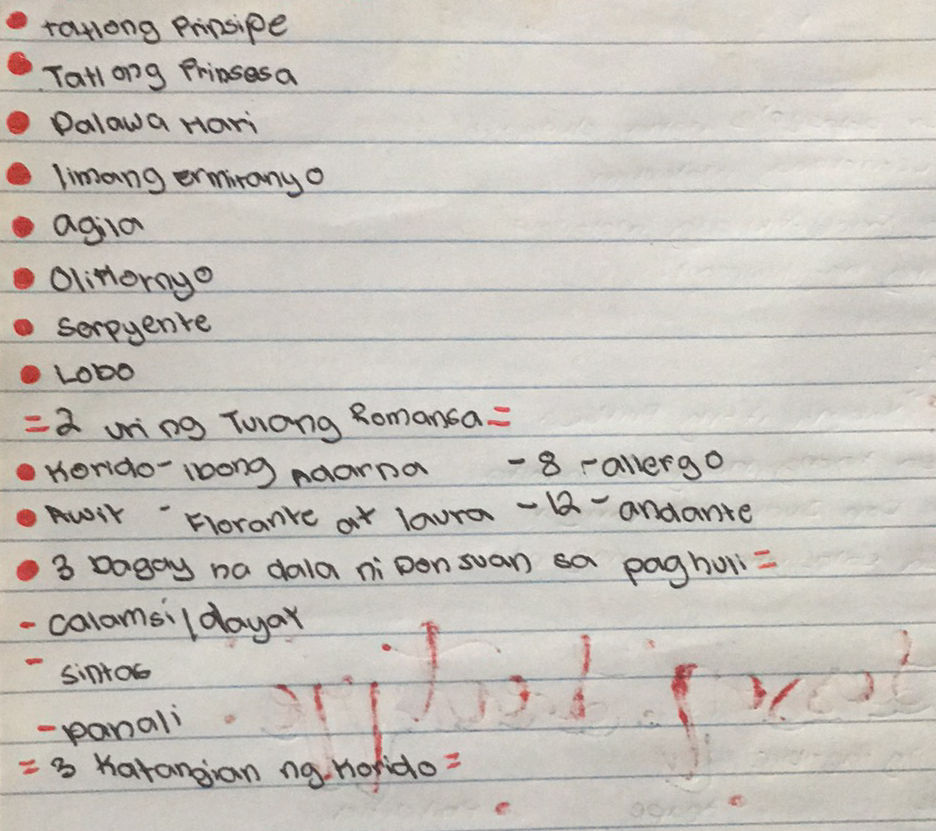 • tatlong Prinsipe
• Tatlong Prinsesa
• Dalawa Hari
• limang ermitanyo
• agila
• Olikornyo
• serpyente
• Lobo
= 2 uri ng Tulang Romansa =
• Korido - ibong Adarna - 8 - allergo
• Awit - Florante at laura - 12 - andante
• 3 bagay na dala ni Don Juan sa paghuli =
- calamsi/dayat
- sintas
- panali
= 3 Katangian ng Korido =